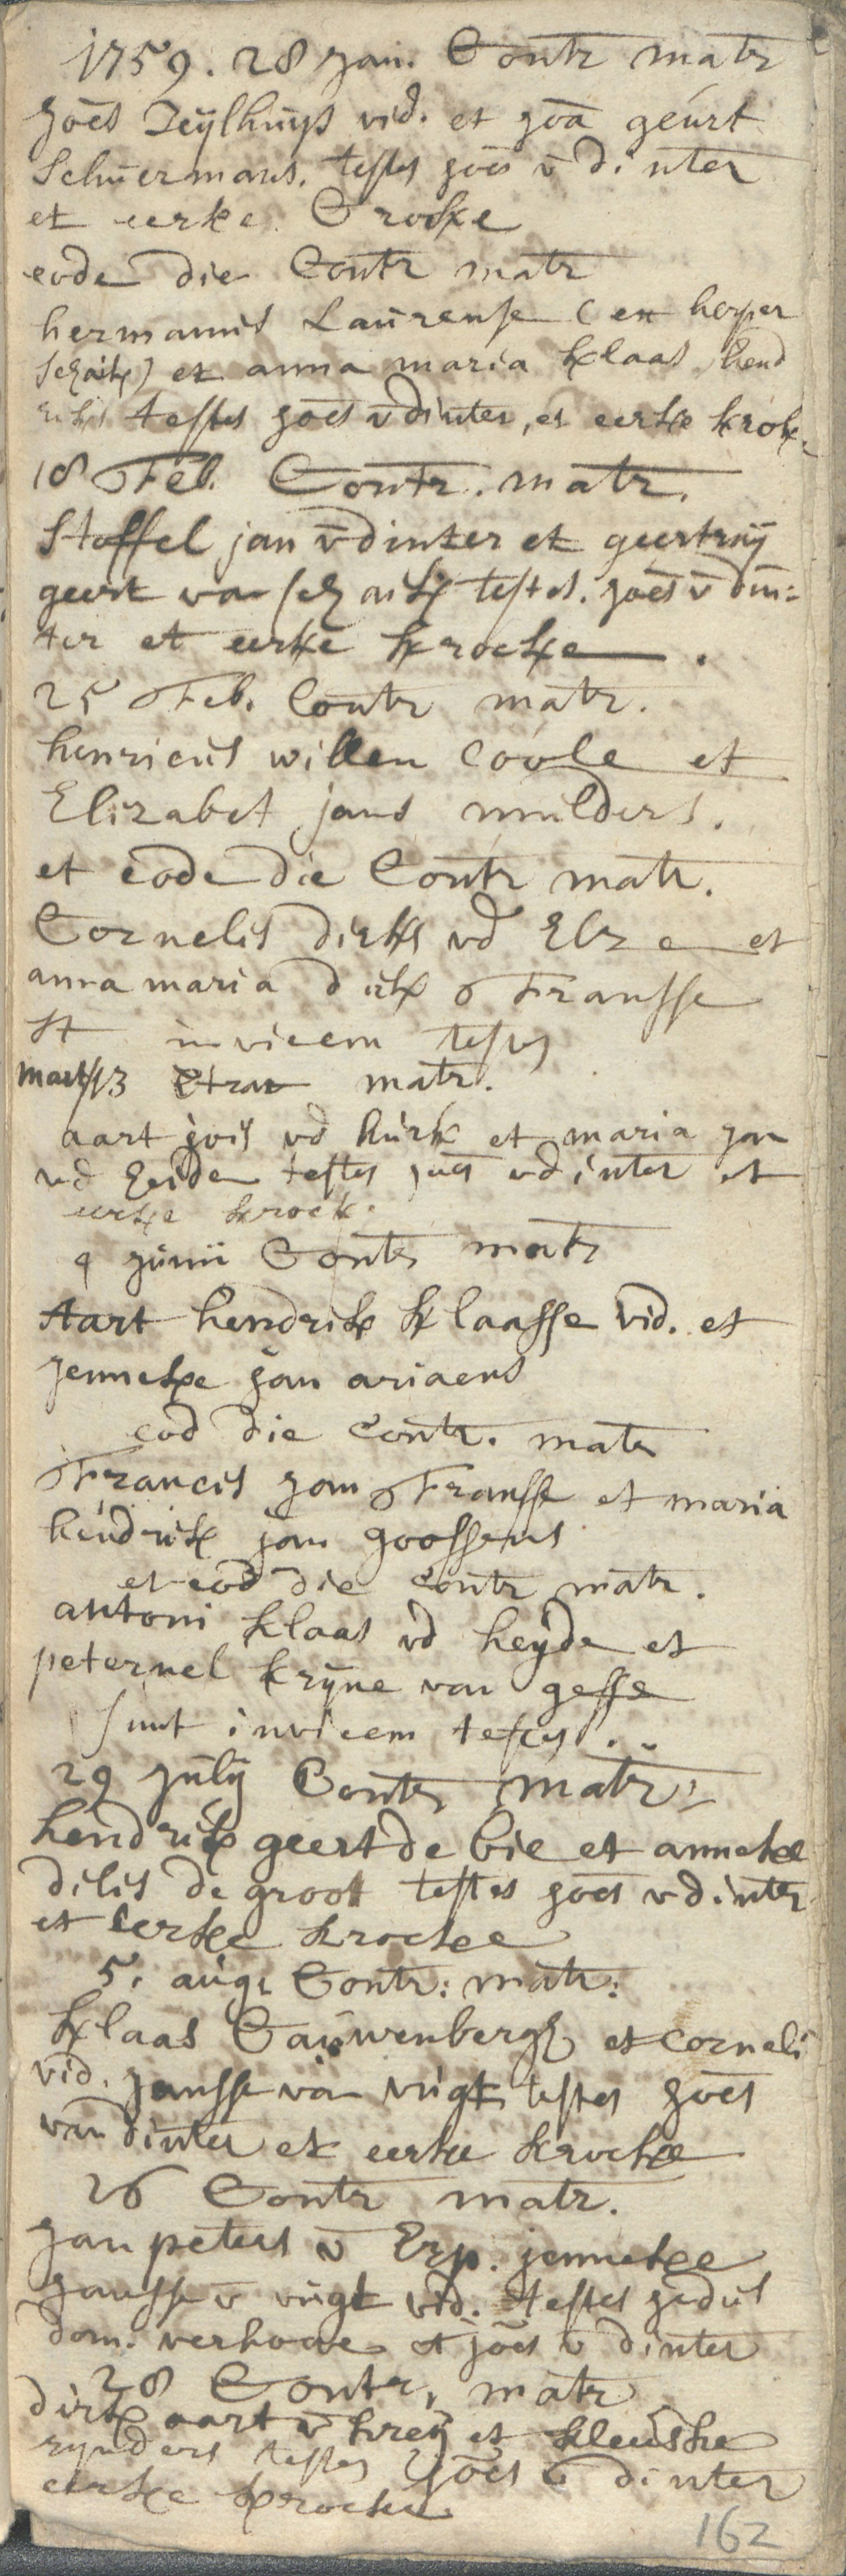 1759. 28 Jan. Contr matr
Joēs Zeÿlhuijs vid. et Joā geurt
Schuermans. testes joēs v̄ dinter
et eerke Crocke
eode die Contr matr
hermanus Laurense (ex herper
schaik) et anna maria klaas hend
testes joēs v dinter, et eerke krok
18 Feb. Contr. matr.
Stoffel jan v̄ dinter et geertruÿ
geert van schaik testes. joēs v̄ din=
ter et eerke krocke.
25 Feb. Contr matr.
henricus willem Coole et
Elizabet jans mulders.
et eode die Contr matr.
Cornelis dirks vd Elze et
anna maria dirk Fransse
st invicem testes
mart 13 Ctrar matr.
aart jois vd hurk et maria jan
vd heide testes joēs vdinter et
eerke krock.
9 junii Contr matr
Aart hendrik klaasse vid. et
jenneke jan ariaens
eod die Contr. matr
Francis jan Fransse et maria
hendrik jan goossens
et eod die Contr matr.
antoni klaas vd heÿde et
peternel krÿne van gesse
sunt invicem testes.
29 julÿ Contr matr
hendrik geert de bie et anneke
dilis de groot testes joēs v dinter
et eerke krocke
5. aug. Contr: matr:
klaas Cauwenbergh et corneli
vid. Jansse van vugt testes joēs
van dinter et eerke krocke
26 Contr matr.
Jan peters v̄ Erp. jenneke
Jansse v̄ vugt vid. testes
dom. verhove et joēs v̄ dinter
28 Contr, matr
dirk aart v̄ kreÿ et kleuske
rynders testes joēs v dinter
eerke krocke
162